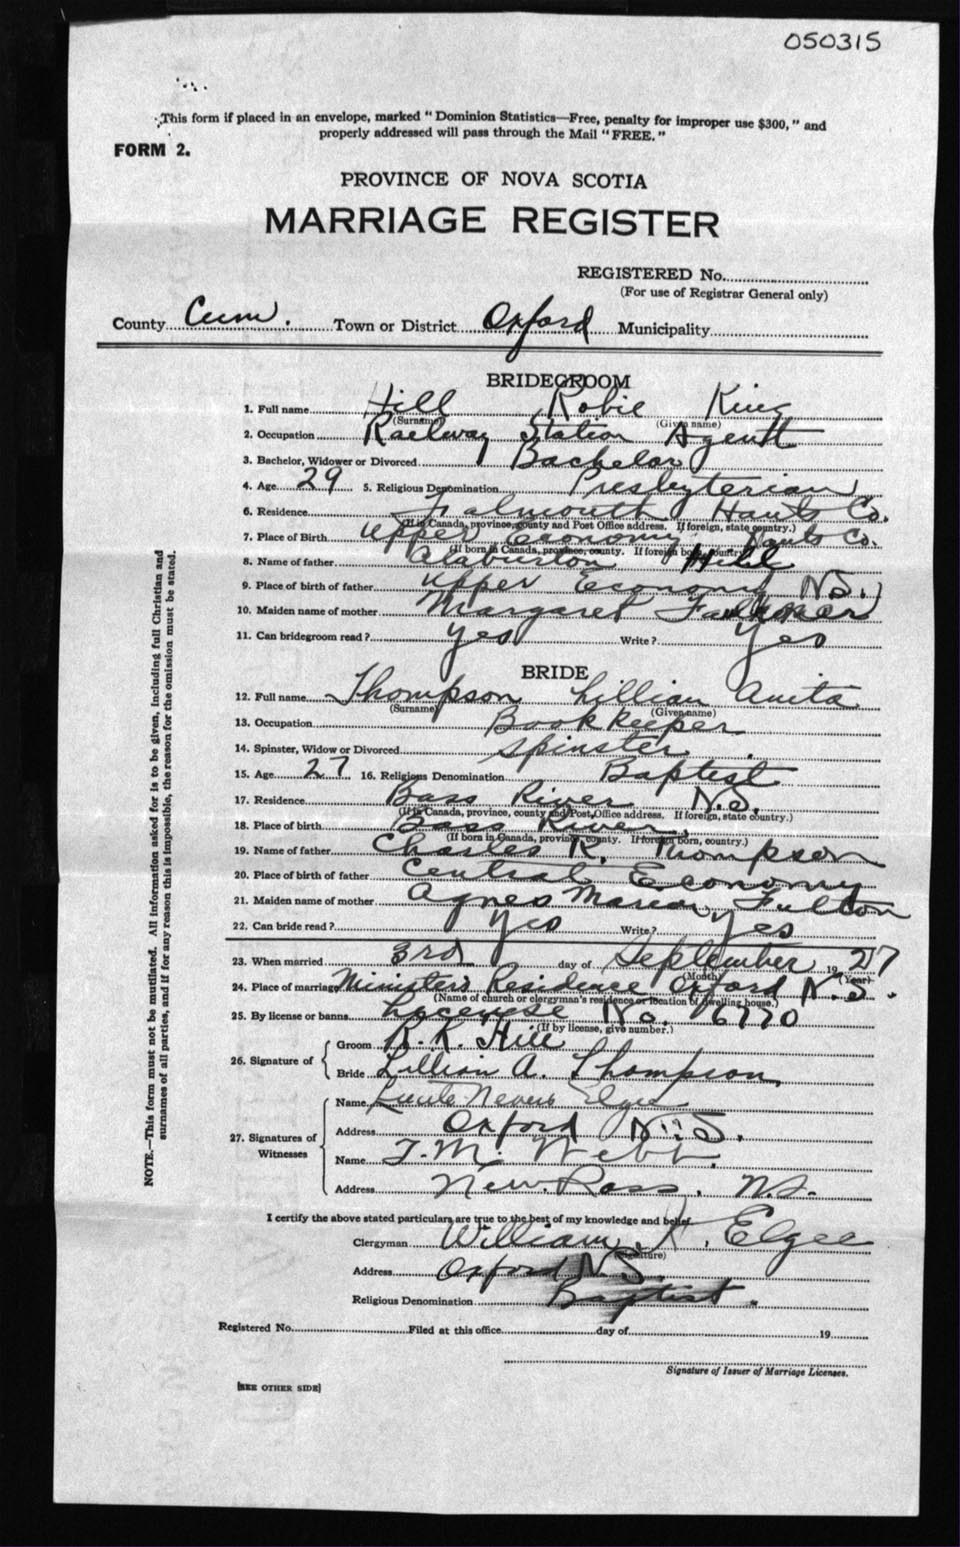 050315
This form if placed in an envelope, marked "Dominion Statistics—Free, penalty for improper use $300," and
properly addressed will pass through the Mail "FREE."
FORM 2.
PROVINCE OF NOVA SCOTIA
MARRIAGE REGISTER
REGISTERED No.
(For use of Registrar General only)
County Cum. Town or District Oxford Municipality
BRIDEGROOM
1. Full name Hill Robie King
(Surname) (Given name)
2. Occupation Railway Station Agent
3. Bachelor, Widower or Divorced Bachelor
4. Age 29 5. Religious Denomination Presbyterian
6. Residence Falmouth Hants Co.
(If in Canada, province, county and Post Office address. If foreign, state country.)
7. Place of Birth Upper Economy Hants Co.
(If born in Canada, province, county. If foreign born, country.)
8. Name of father Hill
9. Place of birth of father Upper Economy N.S.
10. Maiden name of mother Margaret Faulkner
11. Can bridegroom read? Yes Write? Yes
BRIDE
12. Full name Thompson Lillian Anita
(Surname) (Given name)
13. Occupation Bookkeeper
14. Spinster, Widow or Divorced Spinster
15. Age 27 16. Religious Denomination Baptist
17. Residence Bass River N.S.
(If in Canada, province, county and Post Office address. If foreign, state country.)
18. Place of birth Bass River
(If born in Canada, province, county. If foreign born, country.)
19. Name of father Charles R. Thompson
20. Place of birth of father Central Economy
21. Maiden name of mother Agnes Marion Fulton
22. Can bride read? Yes Write? Yes
23. When married 3rd day of September 1927
(Month) (Year)
24. Place of marriage Minister's Residence Oxford N.S.
(Name of church or clergyman's residence or location of dwelling house.)
25. By license or banns Lycenese No. 6770
(If by license, give number.)
26. Signature of
Groom R. K. Hill
Bride Lillian A. Thompson
27. Signatures of Witnesses
Name Nevers Elgee
Address Oxford N.S.
Name T. M. Webb
Address New Ross, N.S.
I certify the above stated particulars are true to the best of my knowledge and belief.
Clergyman William Elgee
(Signature)
Address Oxford N.S.
Religious Denomination Baptist.
Registered No. Filed at this office day of 19
Signature of Issuer of Marriage Licenses.
[SEE OTHER SIDE]
NOTE.—This form must not be mutilated. All information asked for is to be given, including full Christian and
surnames of all parties, and if for any reason this is impossible, the reason for the omission must be stated.